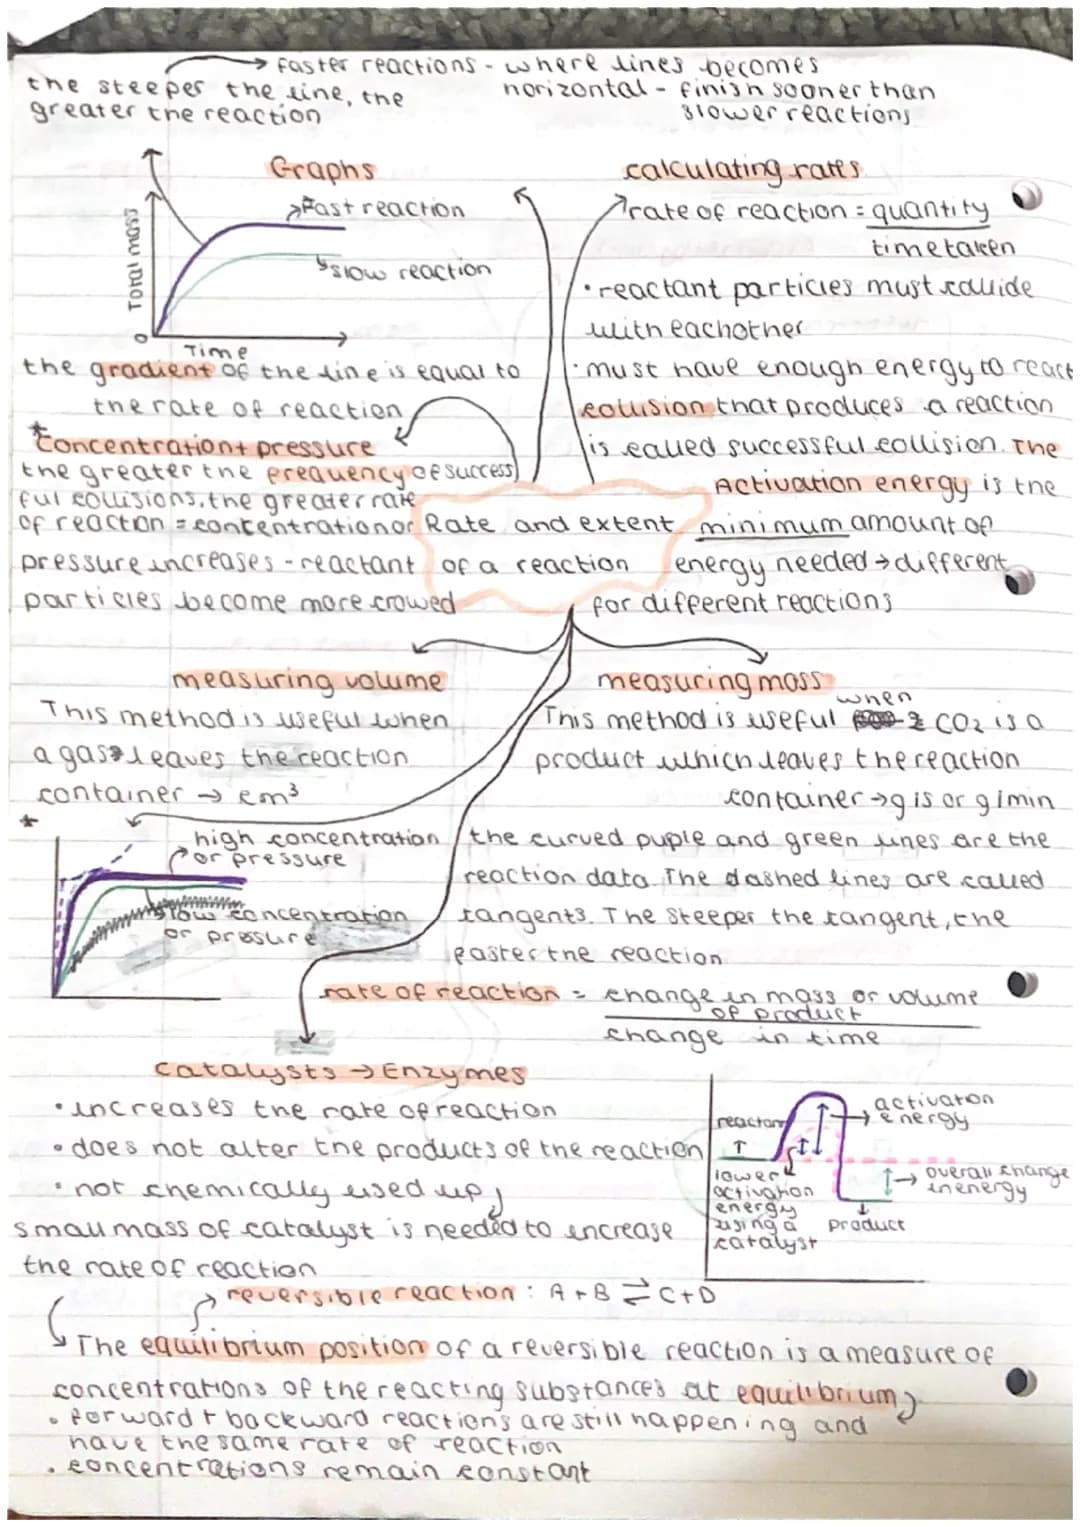 faster reactions - where lines becomes
horizontal - finish sooner than
slower reactions
the steeper the line, the
greater the reaction
Graphs
Total mass
Fast reaction
slow reaction
0
Time
the gradient of the line is equal to
the rate of reaction
calculating rates
rate of reaction = quantity
time taken
• reactant particles must collide
with eachother
• must have enough energy to react
collision that produces a reaction
is called successful collision. The
Activation energy is the
minimum amount of
energy needed → different
for different reactions
*
Concentration + pressure
the greater the frequency of success
ful collisions, the greater rate
of reaction = concentration or
pressure increases - reactant
particles become more crowed
Rate and extent
of a reaction
measuring volume
This method is useful when
a gas leaves the reaction
container → cm³
measuring mass
when
This method is useful CO2 is a
product which leaves the reaction
container → g is or g/min
*
high concentration
or pressure
slow concentration
or pressure
the curved puple and green lines are the
reaction data. The dashed lines are called
tangents. The steeper the tangent, the
faster the reaction
rate of reaction = change in mass or volume
of product
change in time
Catalysts → Enzymes
• increases the rate of reaction
• does not alter the products of the reaction
• not chemically used up
small mass of catalyst is needed to increase
the rate of reaction
reactant
activaton
energy
lower
activation
energy
using a
catalyst
overall change
in energy
product
reversible reaction : A + B ⇌ C + D
The equilibrium position of a reversible reaction is a measure of
concentrations of the reacting substances at equilibrium
• forward + backward reactions are still happening and
have the same rate of reaction
• concentrations remain constant